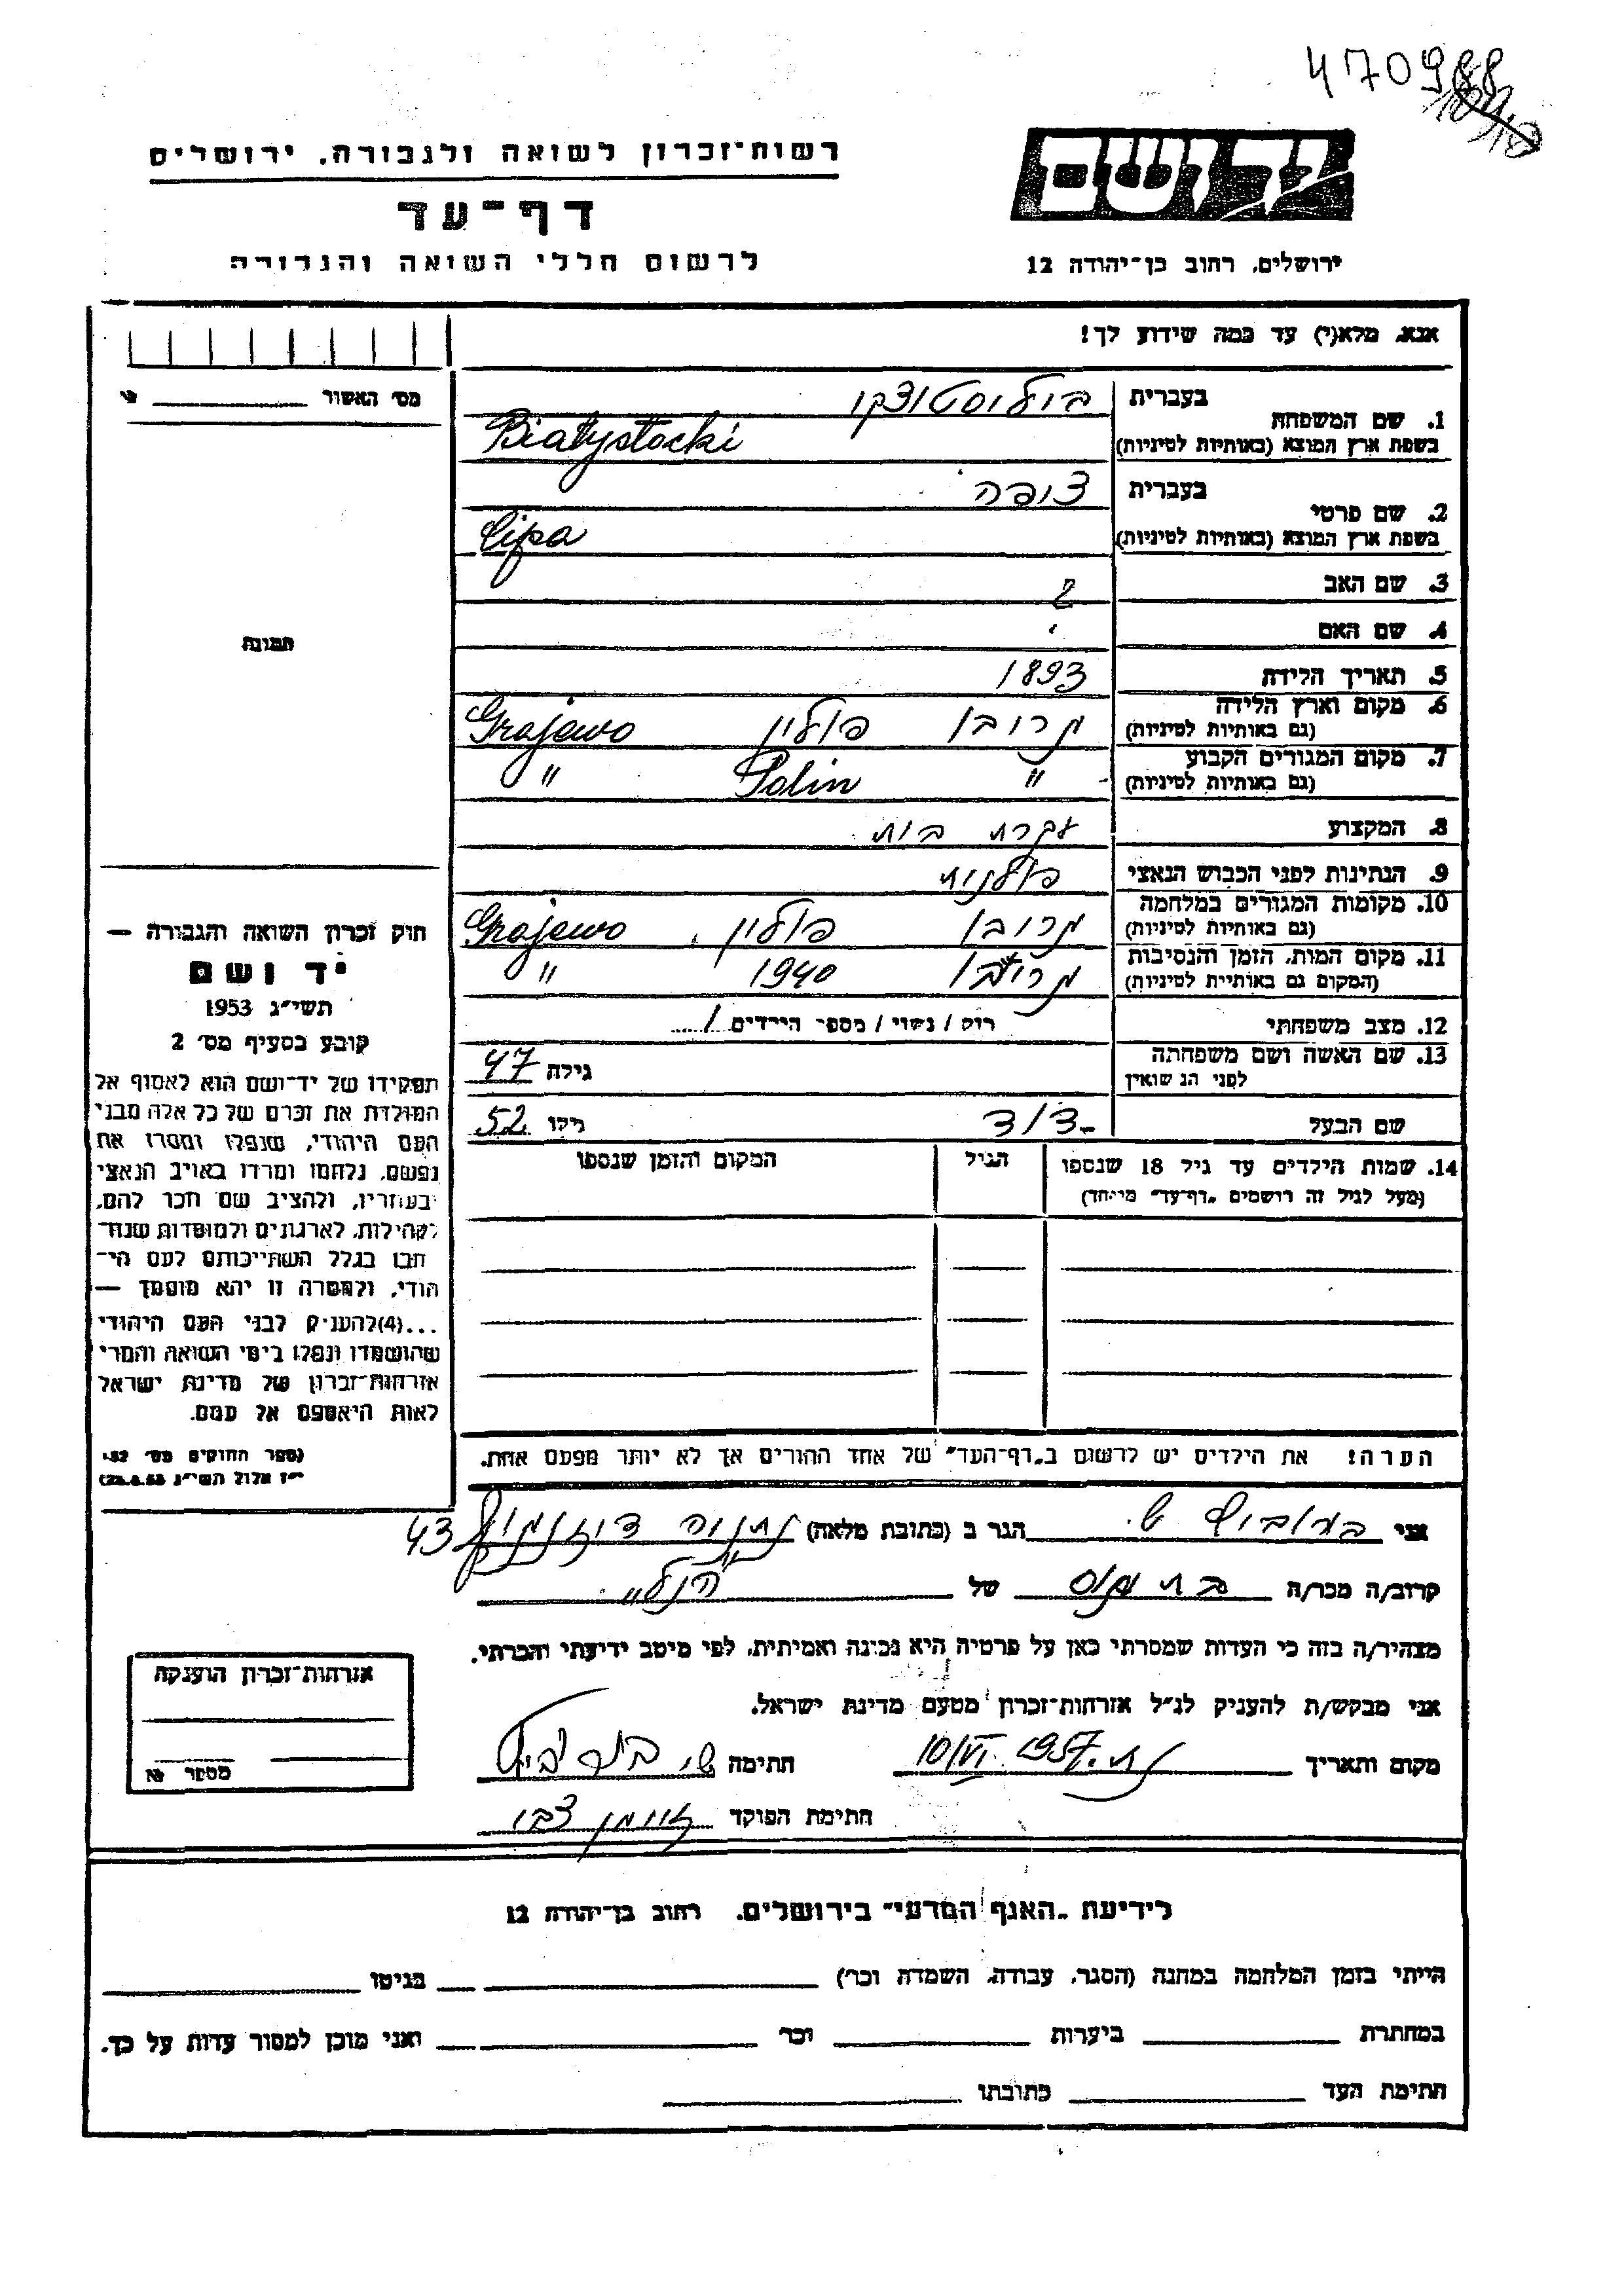 470988
רשות־זכרון לשואה ולגבורה, ירושלים
יד ושם
דף־עד
לרשום חללי השואה והגבורה
ירושלים, רחוב בן־יהודה 12
אנא, מלא(י) עד כמה שידוע לך!
מס׳ האשור
1. שם המשפחה
בעברית
ביליסטוצקי
בשפת ארץ המוצא (באותיות לטיניות)
Białystocki
2. שם פרטי
בעברית
ציפה
בשפת ארץ המוצא (באותיות לטיניות)
Cipa
3. שם האב ?
4. שם האם
תמונה
5. תאריך הלידה 1893
6. מקום וארץ הלידה פולין Grajewo
(גם באותיות לטיניות)
7. מקום המגורים הקבוע " Polin "
(גם באותיות לטיניות)
8. המקצוע עקרת בית
9. הנתינות לפני הכבוש הנאצי פולנית
10. מקומות המגורים במלחמה פולין Grajewo
(גם באותיות לטיניות)
11. מקום המות, הזמן והנסיבות 1940 "
(המקום גם באותיות לטיניות)
12. מצב משפחתי רוק / נשוי / מספר הילדים 1
13. שם האשה ושם משפחתה
לפני הנשואין
גילה 47
שם הבעל דוד גילו 52
14. שמות הילדים עד גיל 18 שנספו
(מעל לגיל זה רושמים „דף־עד" מיוחד)
הגיל
המקום והזמן שנספו
חוק זכרון השואה והגבורה —
יד ושם
תשי״ג 1953
קובע בסעיף מס׳ 2
תפקידו של יד־ושם הוא לאסוף אל
המולדת את זכרם של כל אלה מבני
העם היהודי, שנפלו ומסרו את
נפשם, נלחמו ומרדו באויב הנאצי
ובעוזריו, ולהציב שם וזכר להם,
לקהילות, לארגונים ולמוסדות שנח־
רבו בגלל השתייכותם לעם הי־
הודי, ולמטרה זו יהא מוסמך —
...(4)להעניק לבני העם היהודי
שהושמדו ונפלו בימי השואה והמרי
אזרחות־זכרון של מדינת ישראל
לאות היאספם אל עמם.
(ספר החוקים מס׳ 132
י״ז אלול תשי״ג 28.8.53)
הערה! את הילדים יש לרשום ב„דף־העד" של אחד ההורים אך לא יותר מפעם אחת.
אני הגר ב (כתובת מלאה) נתניה דיזנגוף 43
קרוב/ה מכר/ה של הנ״ל
מצהיר/ה בזה כי העדות שמסרתי כאן על פרטיה היא נכונה ואמיתית, לפי מיטב ידיעתי והכרתי.
אני מבקש/ת להעניק לנ״ל אזרחות־זכרון מטעם מדינת ישראל.
מקום ותאריך 10/VI 1957 חתימה
חתימת הפוקד צבי
אזרחות־זכרון הוענקה
מספר
לידיעת „האגף המדעי" בירושלים, רחוב בן־יהודה 12
הייתי בזמן המלחמה במחנה (הסגר, עבודה, השמדה וכו׳) בגיטו
במחתרת ביערות וכו׳ ואני מוכן למסור עדות על כך.
חתימת העד כתובתו